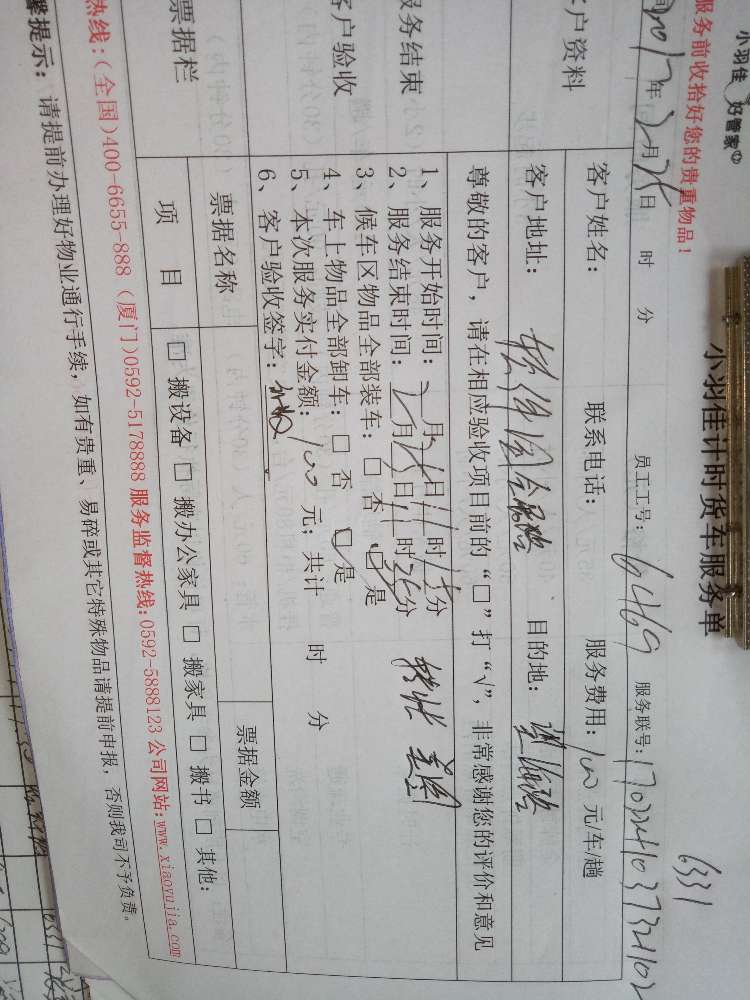 小羽佳 好管家
6331
小羽佳计时货车服务单
服务前收拾好您的贵重物品！
2017年2月25日 时 分 员工工号：6469 服务联号：
客户资料
客户姓名： 联系电话： 服务费用：100元/车/趟
客户地址： 目的地：
尊敬的客户，请在相应验收项目前的“□”打“√”，非常感谢您的评价和意见
服务结束
客户验收
1、服务开始时间：2月25日11时15分
2、服务结束时间：2月25日11时25分
3、候车区物品全部装车：□否 □是
4、车上物品全部卸车：□否 □是
5、本次服务实付金额：100元；共计 时 分
6、客户验收签字：
票据栏
票据名称 票据金额
项 目 □搬设备 □搬办公家具 □搬家具 □搬书 □其他：
热线：(全国)400-6655-888 (厦门)0592-5178888 服务监督热线:0592-5888123 公司网站:www.xiaoyujia.com
馨提示：请提前办理好物业通行手续，如有贵重、易碎或其它特殊物品请提前申报，否则我司不予负责。